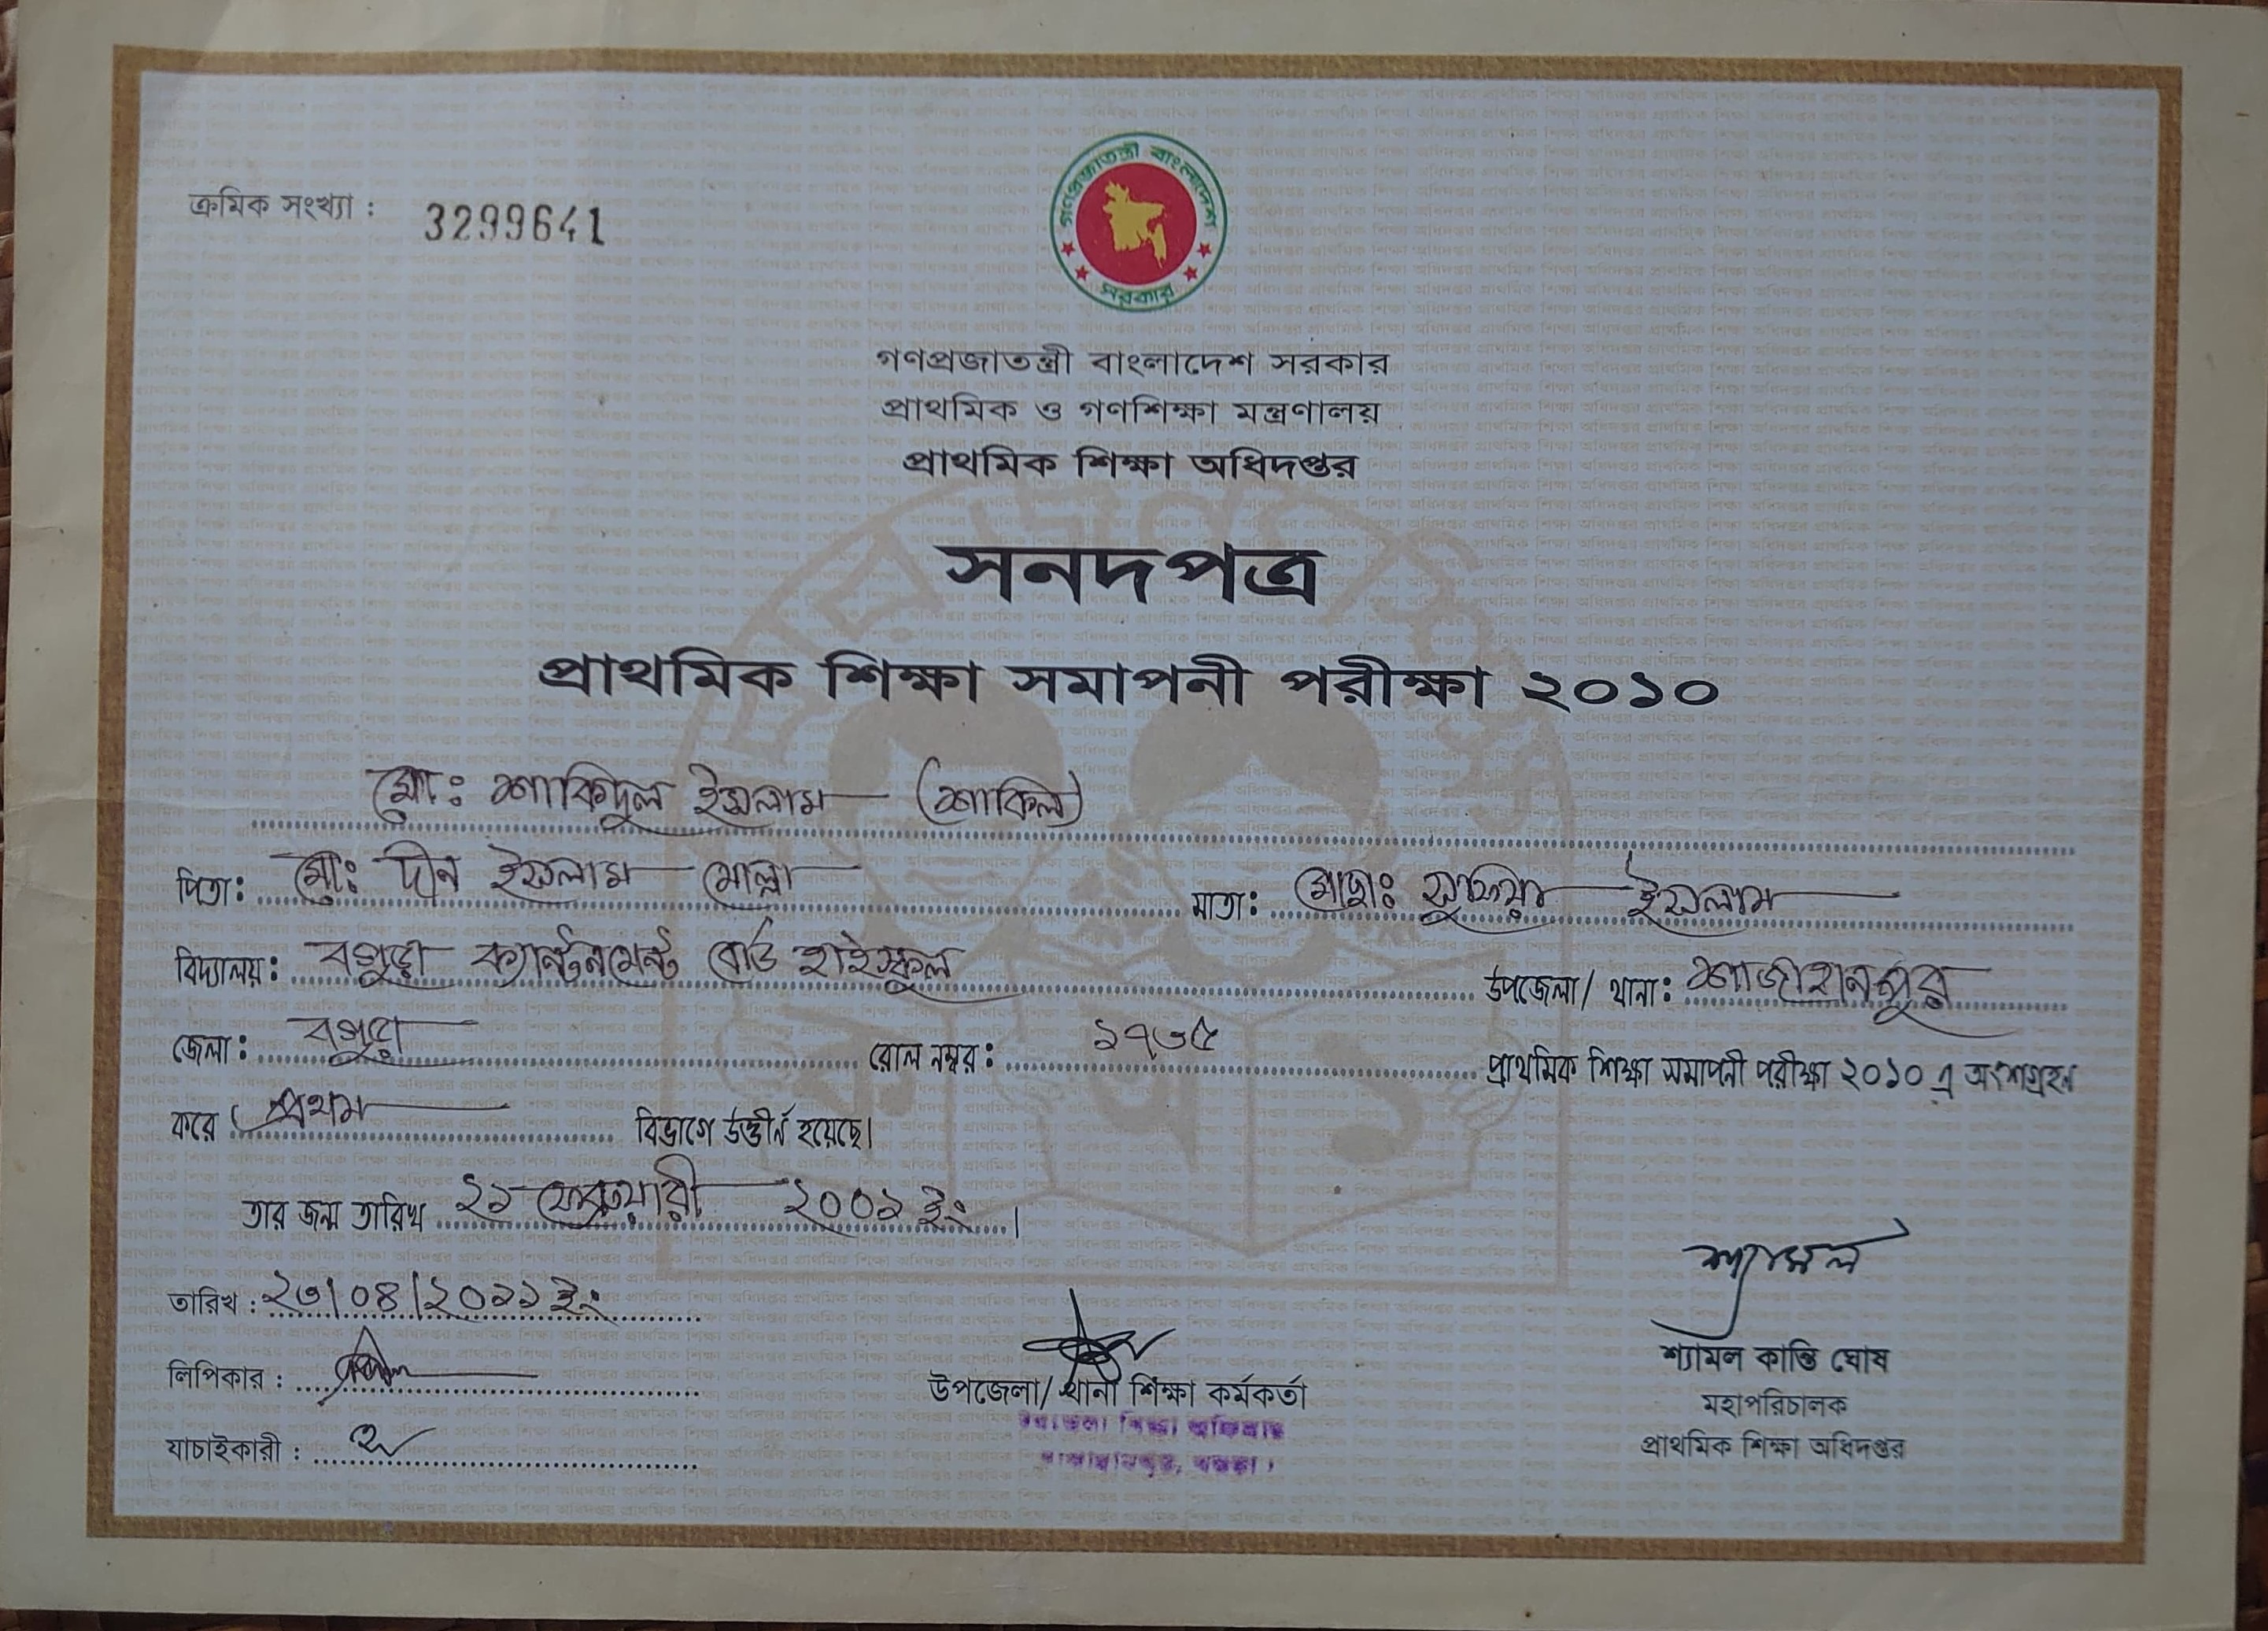 ক্রমিক সংখ্যা : 3299641
গণপ্রজাতন্ত্রী বাংলাদেশ
সরকার
গণপ্রজাতন্ত্রী বাংলাদেশ সরকার
প্রাথমিক ও গণশিক্ষা মন্ত্রণালয়
প্রাথমিক শিক্ষা অধিদপ্তর
সনদপত্র
প্রাথমিক শিক্ষা সমাপনী পরীক্ষা ২০১০
মোঃ শাকিদুল ইসলাম (শাকিল)
পিতা: মোঃ দীন ইসলাম মোল্লা মাতা: মোছাঃ সুফিয়া ইসলাম
বিদ্যালয়: বগুড়া ক্যান্টনমেন্ট বোর্ড হাইস্কুল উপজেলা/ থানা: শাজাহানপুর
জেলা: বগুড়া রোল নম্বর: ১৭৩৫ প্রাথমিক শিক্ষা সমাপনী পরীক্ষা ২০১০ এ অংশগ্রহন
করে প্রথম বিভাগে উত্তীর্ন হয়েছে।
তার জন্ম তারিখ ২১ ফেব্রুয়ারী ২০০১ ইং ।
তারিখ : ২৩/০৪/২০১১ ইং
শ্যামল
লিপিকার :
উপজেলা/ থানা শিক্ষা কর্মকর্তা
শ্যামল কান্তি ঘোষ
মহাপরিচালক
প্রাথমিক শিক্ষা অধিদপ্তর
যাচাইকারী :
উপজেলা শিক্ষা অফিসার
শাজাহানপুর, বগুড়া।